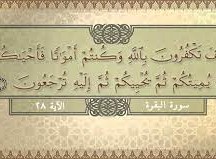 تَكْفُرُونَ بِاللَّهِ وَكُنتُمْ أَمْوَاتًا فَأَحْيَاكُمْ
يُمِيتُكُمْ ثُمَّ يُحْيِيكُمْ ثُمَّ إِلَيْهِ تُرْجَعُونَ
سورة البقرة الآية ٢٨